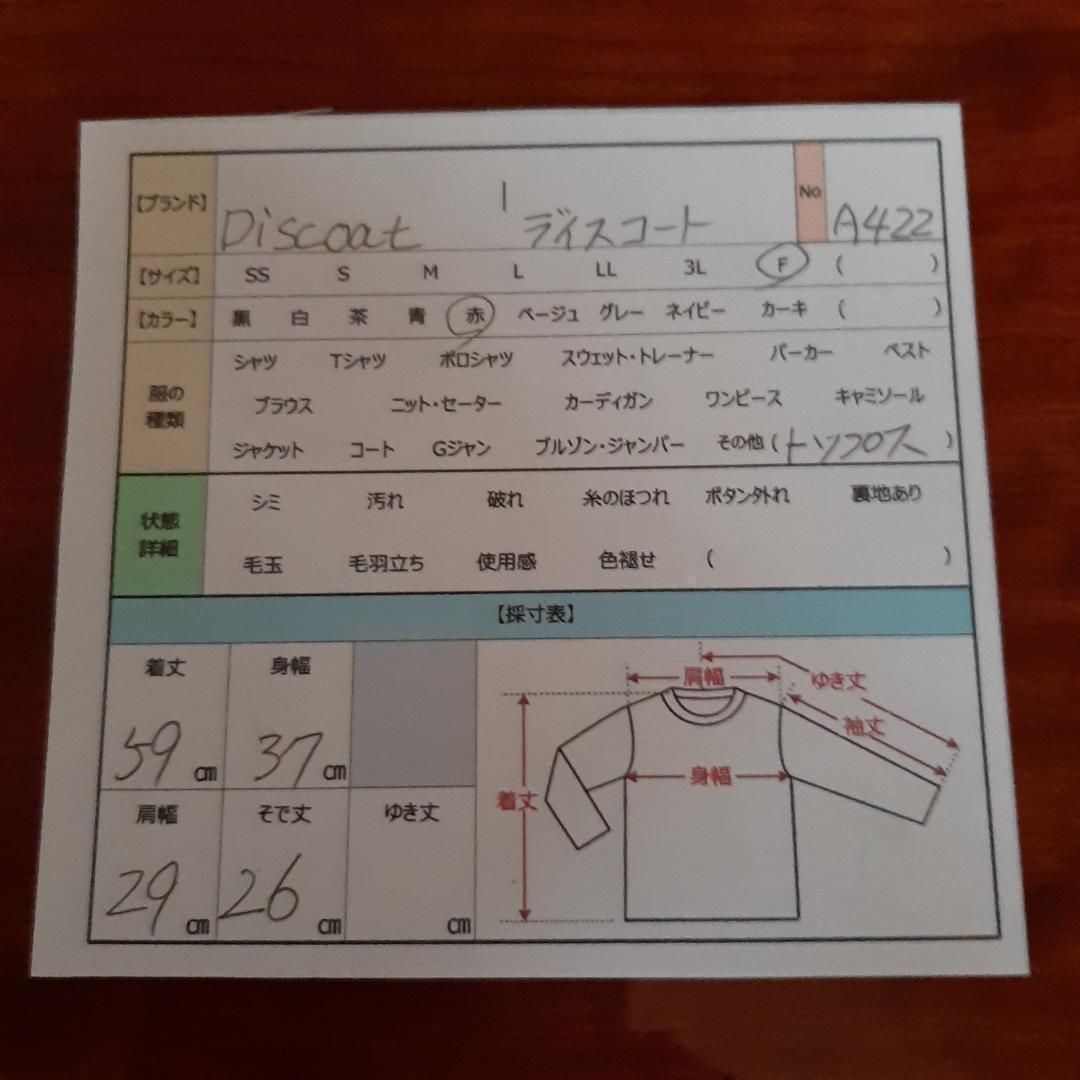 【ブランド】 Discoat | ディスコート No A422
【サイズ】 SS S M L LL 3L F ( )
【カラー】 黒 白 茶 青 赤 ベージュ グレー ネイビー カーキ ( )
服の種類
シャツ Tシャツ ポロシャツ スウェット・トレーナー パーカー ベスト
ブラウス ニット・セーター カーディガン ワンピース キャミソール
ジャケット コート Gジャン ブルゾン・ジャンパー その他 ( トップス )
状態詳細
シミ 汚れ 破れ 糸のほつれ ボタン外れ 裏地あり
毛玉 毛羽立ち 使用感 色褪せ ( )
【採寸表】
着丈 身幅
59 cm 37 cm
肩幅 そで丈 ゆき丈
29 cm 26 cm cm
肩幅
ゆき丈
袖丈
身幅
着丈